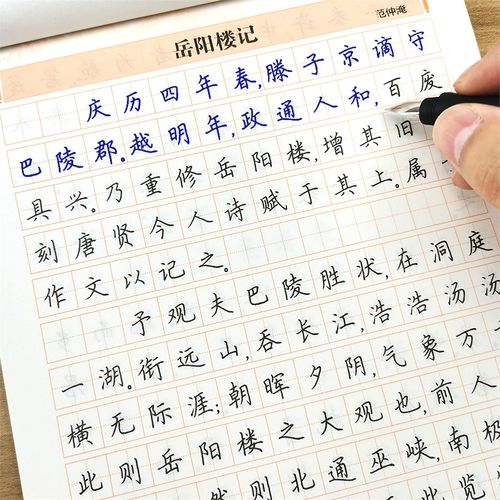 范仲淹
岳阳楼记
庆历四年春,滕子京谪守
巴陵郡。越明年,政通人和,百废
具兴。乃重修岳阳楼,增其旧
刻唐贤今人诗赋于其上。属
作文以记之。
予观夫巴陵胜状,在洞庭
一湖。衔远山,吞长江,浩浩汤汤
横无际涯;朝晖夕阴,气象万
此则岳阳楼之大观也,前人
然则北通巫峡,南极